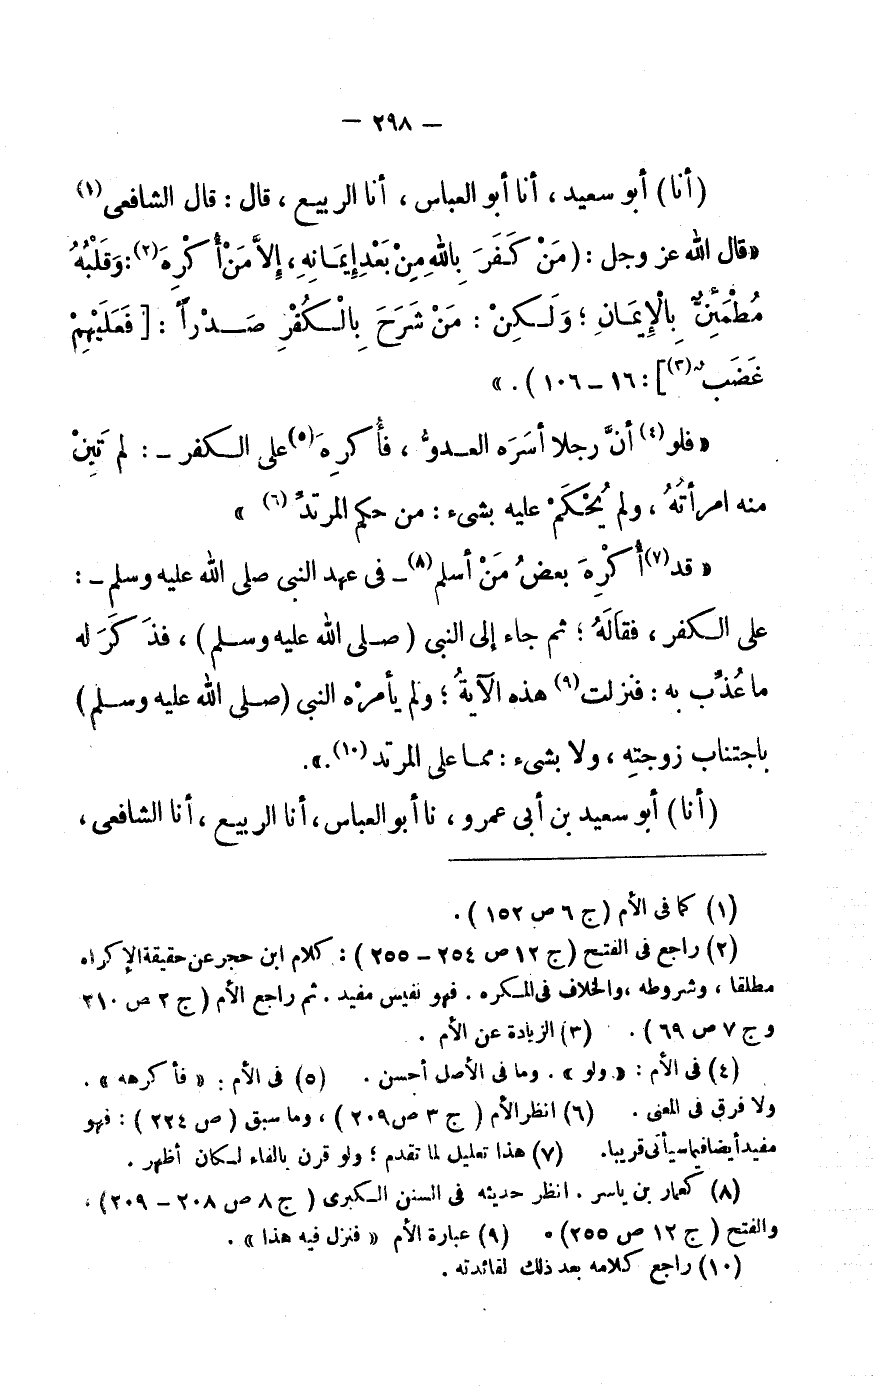 — ٢٩٨ —
(أنا) أبو سعيد ، أنا أبو العباس ، أنا الربيع ، قال : قال الشافعى(١)
«قال الله عز وجل : (مَنْ كَفَرَ بِاللهِ مِنْ بَعْدِ إِيمَانِهِ ، إِلاَّ مَنْ أُكْرِهَ(٢) : وَقَلْبُهُ
مُطْمَئِنٌّ بِالْإِيمَانِ ؛ وَلَكِنْ : مَنْ شَرَحَ بِالْكُفْرِ صَدْراً : [ فَعَلَيْهِمْ
غَضَبٌ(٣) ] : ١٦ – ١٠٦ ) . »
« فلو(٤) أنَّ رجلا أسَرَه العدوُّ ، فأُكرِهَ(٥) على الكفر – : لم تَبِنْ
منه امرأتُهُ ، ولم يُحْكَمْ عليه بشىء : من حكم المرتدِّ(٦) »
« قد(٧) أُكْرِهَ بعضُ مَنْ أسلم(٨) – فى عهد النبى صلى الله عليه وسلم – :
على الكفر ، فقالَهُ ؛ ثم جاء إلى النبى ( صلى الله عليه وسلم ) ، فذَكَرَ له
ما عُذِّب به : فنزلت(٩) هذه الآيةُ ؛ ولم يأمرْه النبى (صلى الله عليه وسلم)
باجتناب زوجتِه ، ولا بشىء : مما على المرتد(١٠) .» .
(أنا) أبو سعيد بن أبى عمرو ، نا أبو العباس ، أنا الربيع ، أنا الشافعى ،
(١) كما فى الأم (ج ٦ ص ١٥٢ ) .
(٢) راجع فى الفتح (ج ١٢ ص ٢٥٤ – ٢٥٥ ) : كلام ابن حجر عن حقيقة الإكراه
مطلقا ، وشروطه ، والخلاف فى المكره . فهو نفيس مفيد . ثم راجع الأم ( ج ٢ ص ٢١٠
و ج ٧ ص ٦٩ ) . (٣) الزيادة عن الأم .
(٤) فى الأم : « ولو » . وما فى الأصل أحسن . (٥) فى الأم : « فأكرهه » .
ولا فرق فى المعنى . (٦) انظر الأم ( ج ٣ ص ٢٠٩ ) ، وما سبق ( ص ٢٢٤ ) : فهو
مفيد أيضا فيما سيأتى قريبا. (٧) هذا تعليل لما تقدم ؛ ولو قرن بالفاء لكان أظهر .
(٨) كعمار بن ياسر . انظر حديثه فى السنن الكبرى ( ج ٨ ص ٢٠٨ – ٢٠٩ ) ،
والفتح ( ج ١٢ ص ٢٥٥) . (٩) عبارة الأم « فنزل فيه هذا » .
(١٠) راجع كلامه بعد ذلك لفائدته .